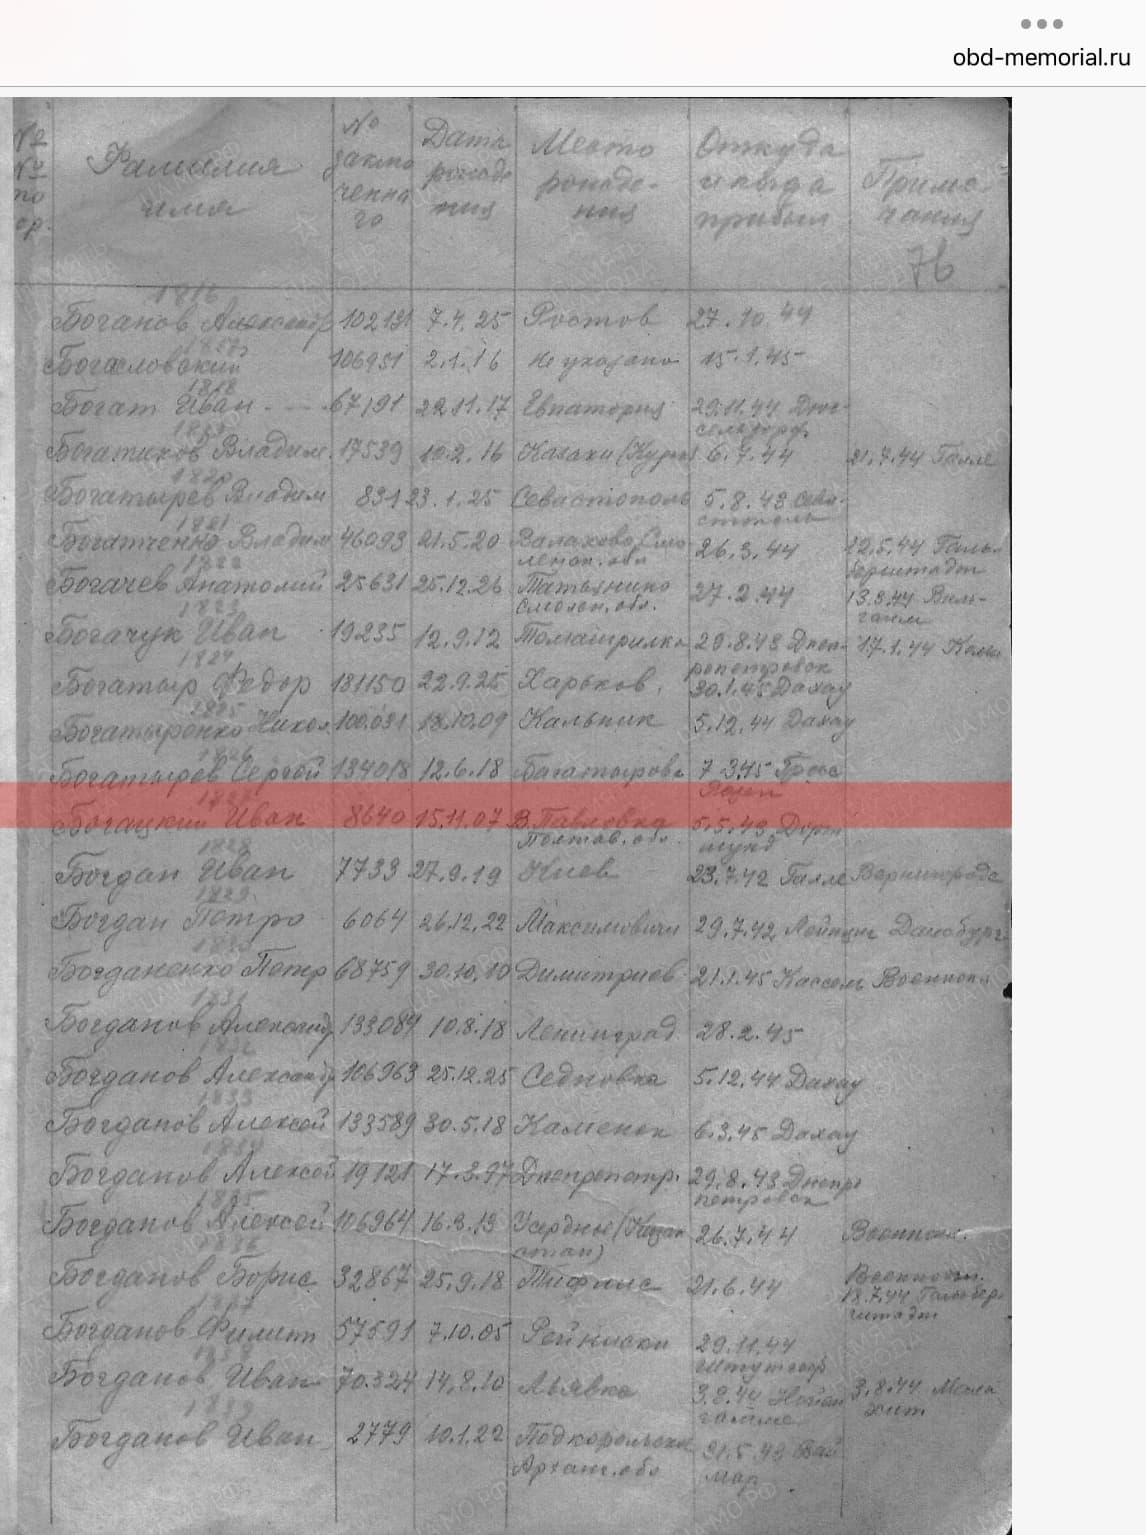 obd-memorial.ru
№
№
по
ор.
Фамилия
имя
№
заклю
ченно
го
Дата
рожде
ния
Место
рожде-
ния
Откуда
и когда
прибыл
Приме-
чания
76
1816
Боганов Александр 102131 7.4.25 Ростов 27.10.44
1817
Богословский 106951 2.1.16 Не указано 15.1.45
1818
Богат Иван 67191 22.11.17 Евпатория 29.11.44 Дюс-
сельдорф.
Богатиков Владим. 17539 10.2.16 Казаки 6.7.44 21.7.44 Галле
1820
Богатырев Владим 831 23.1.25 Севастополь 5.8.43 Сева-
стополь
1821
Богатченко Владим 46093 21.5.20 26.3.44 12.5.44 Галь-
ленск. обл берштадт
1822
Богачев Анатолий 25631 25.12.26 Татьянино 27.2.44
смолен. обл.
1823
Богачук Иван 19235 12.9.12 29.8.43 Днеп- 17.1.44
ропетровск
1824
Богатыр Федор 131150 22.9.25 Харьков. 30.1.45 Дахау
1825
Богатыренко Никол. 100.031 18.10.09 Кальник 5.12.44 Дахау
1826
Богатырев Сергей 134018 12.6.18 Богатырово 7.3.45 Гросс
Розен
1827
Богацкий Иван 8640 15.11.07 В. Павловка 5.5.43 Дорт
Полтав. обл. мунд
1828
Богдан Иван 7733 27.9.19 Киев 23.7.42 Галле Вернигероде
1829
Богдан Петро 6064 26.12.22 Максимовичи 29.7.42 Лейпциг
1830
Богданенко Петр 68759 30.10.10 Димитриев 21.1.45 Кассель Военноп.
1831
Богданов Александр 133084 10.8.18 Ленинград 28.2.45
1832
Богданов Александр 106963 25.12.25 Седновка 5.12.44 Дахау
1833
Богданов Алексей 133589 30.5.18 Каменск 6.3.45 Дахау
1834
Богданов Алексей 19121 17.3.97 Днепропетр. 29.8.43 Днепро
петровск
1835
Богданов Алексей 106964 16.3.13 26.7.44 Военноп.
1836
Богданов Борис 32867 25.9.18 Тифлис 21.6.44 Военнопл.
18.7.44 Гальбер-
штадт
1837
Богданов Филипп 57591 7.10.05 29.11.44
штутгарт
1838
Богданов Иван 70.324 14.8.10 3.8.44
гамме
1839
Богданов Иван 2779 10.1.22 21.5.43 Вей
Арханг. обл мар